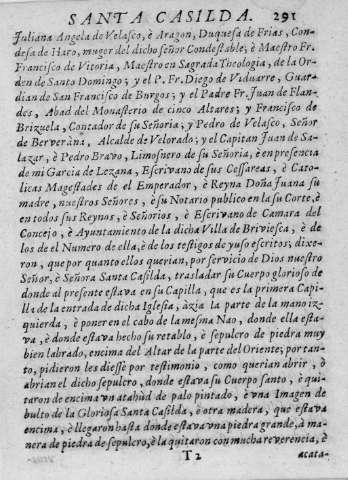 SANTA CASILDA. 291
Juliana Angela de Velasco, è Aragon, Duquesa de Frias, Con-
desa de Haro, muger del dicho señor Condestable; è Maestro Fr.
Francisco de Vitoria, Maestro en Sagrada Theologia, de la Or-
den de Santo Domingo; y el P. Fr. Diego de Viduarre, Guar-
dian de San Francisco de Burgos; y el Padre Fr. Juan de Flan-
des, Abad del Monasterio de cinco Altares; y Francisco de
Brizuela, Contador de su Señoria; y Pedro de Velasco, Señor
de Berverana, Alcalde de Velorado; y el Capitan Juan de Sa-
lazar, è Pedro Bravo, Limosnero de su Señoria, è en presencia
de mi Garcia de Lezana, Escrivano de sus Cessareas, è Cato-
licas Magestades el Emperador, è Reyna Doña Juana su
madre, nuestros Señores, è su Notario publico en la su Corte, è
en todos sus Reynos, è Señorios, è Escrivano de Camara del
Concejo, è Ayuntamiento de la dicha Villa de Briviesca, è de
los de el Numero de ella, è de los testigos de yuso escritos; dixe-
ron, que por quanto ellos querian, por servicio de Dios nuestro
Señor, è Señora Santa Casilda, trasladar su Cuerpo glorioso de
donde al presente estava en su Capilla, que es la primera Capi-
lla de la entrada de dicha Iglesia, àzia la parte de la mano iz-
quierda, è poner en el cabo de la mesma Nao, donde ella esta-
va, è donde estava hecho su retablo, è sepulcro de piedra muy
bien labrado, encima del Altar de la parte del Oriente; por tan-
to, pidieron les diesse por testimonio, como querian abrir, ò
abrian el dicho sepulcro, donde estava su Cuerpo santo, è qui-
taron de encima vn atahùd de palo pintado, è vna Imagen de
bulto de la Gloriosa Santa Casilda, è otra madera, que estava
encima, è llegaron hasta donde estava vna piedra grande, à ma-
nera de piedra de sepulcro, è la quitaron con mucha reverencia, è
T2 acata-